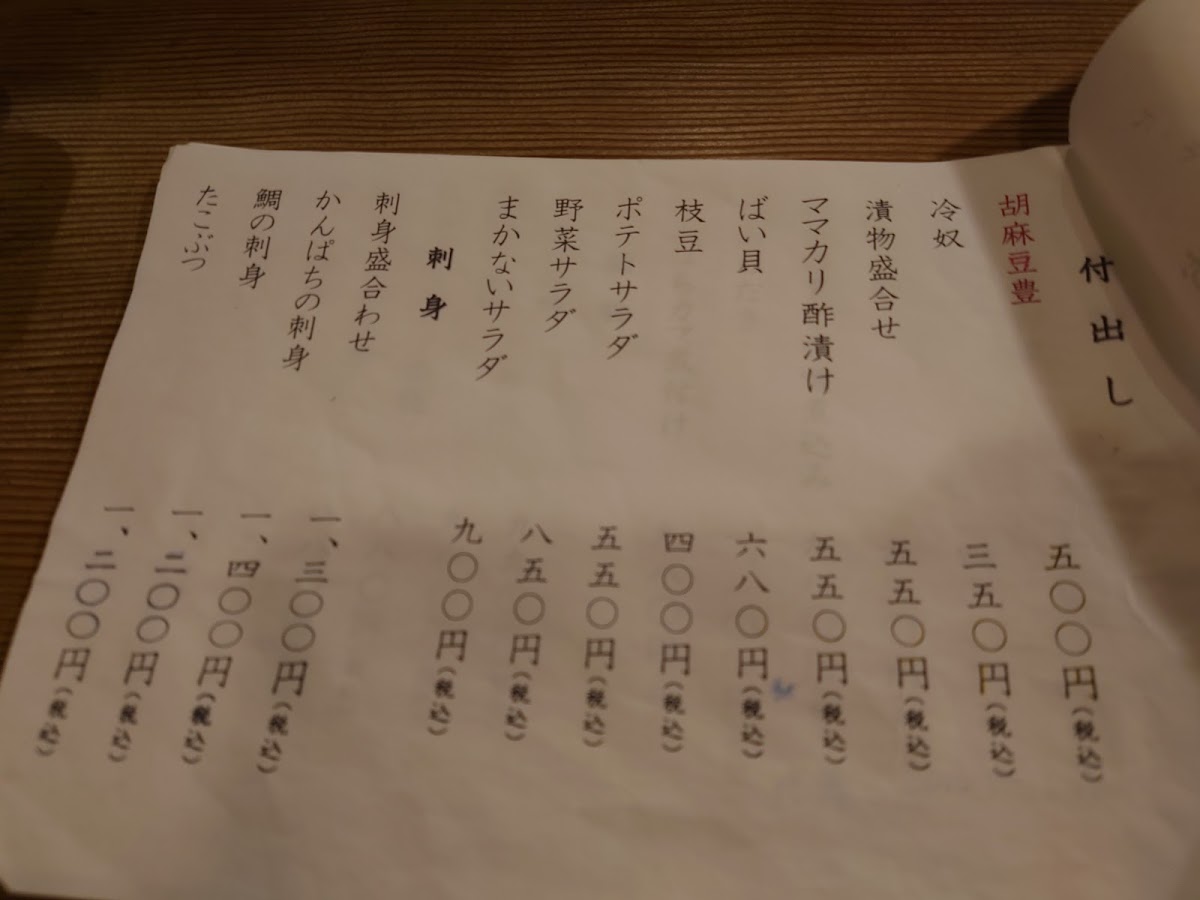 付出し
胡麻豆豊 五〇〇円(税込)
冷奴 三五〇円(税込)
漬物盛合せ 五五〇円(税込)
ママカリ酢漬け 五五〇円(税込)
ばい貝 六八〇円(税込)
枝豆 四〇〇円(税込)
ポテトサラダ 五五〇円(税込)
野菜サラダ 八五〇円(税込)
まかないサラダ 九〇〇円(税込)
刺身
刺身盛合わせ 一、三〇〇円(税込)
かんぱちの刺身 一、四〇〇円(税込)
鯛の刺身 一、二〇〇円(税込)
たこぶつ 一、二〇〇円(税込)